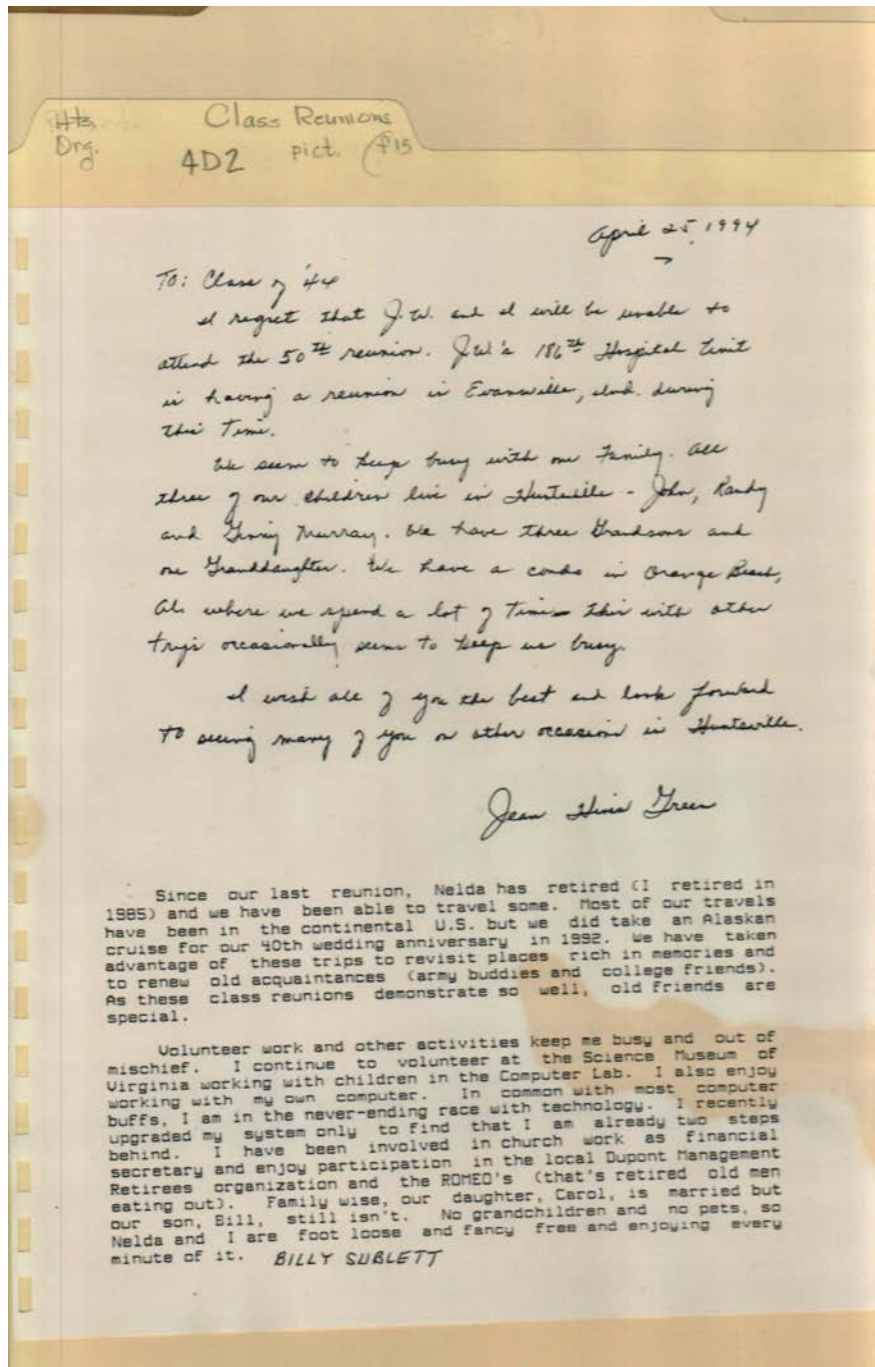 Hts, Class Reunions
Org. 4D2 pict. f15
April 25, 1994
To: Class of '44
I regret that J.W. and I will be unable to
attend the 50th reunion. J.W.'s 186th Hospital Unit
is having a reunion in Evansville, Ind. during
this time.
We seem to keep busy with our Family. All
three of our children live in Huntsville - John, Randy
and Ginny Murray. We have three Grandsons and
one Granddaughter. We have a condo in Orange Beach,
Al. where we spend a lot of time - this with other
trips occasionally seems to keep us busy.
I wish all of you the best and look forward
to seeing many of you on other occasions in Huntsville.
Jean Green
Since our last reunion, Nelda has retired (I retired in
1985) and we have been able to travel some. Most of our travels
have been in the continental U.S. but we did take an Alaskan
cruise for our 40th wedding anniversary in 1992. We have taken
advantage of these trips to revisit places rich in memories and
to renew old acquaintances (army buddies and college friends).
As these class reunions demonstrate so well, old friends are
special.
Volunteer work and other activities keep me busy and out of
mischief. I continue to volunteer at the Science Museum of
Virginia working with children in the Computer Lab. I also enjoy
working with my own computer. In common with most computer
buffs, I am in the never-ending race with technology. I recently
upgraded my system only to find that I am already two steps
behind. I have been involved in church work as financial
secretary and enjoy participation in the local Dupont Management
Retirees organization and the ROMEO's (that's retired old men
eating out). Family wise, our daughter, Carol, is married but
our son, Bill, still isn't. No grandchildren and no pets, so
Nelda and I are foot loose and fancy free and enjoying every
minute of it. BILLY SUBLETT